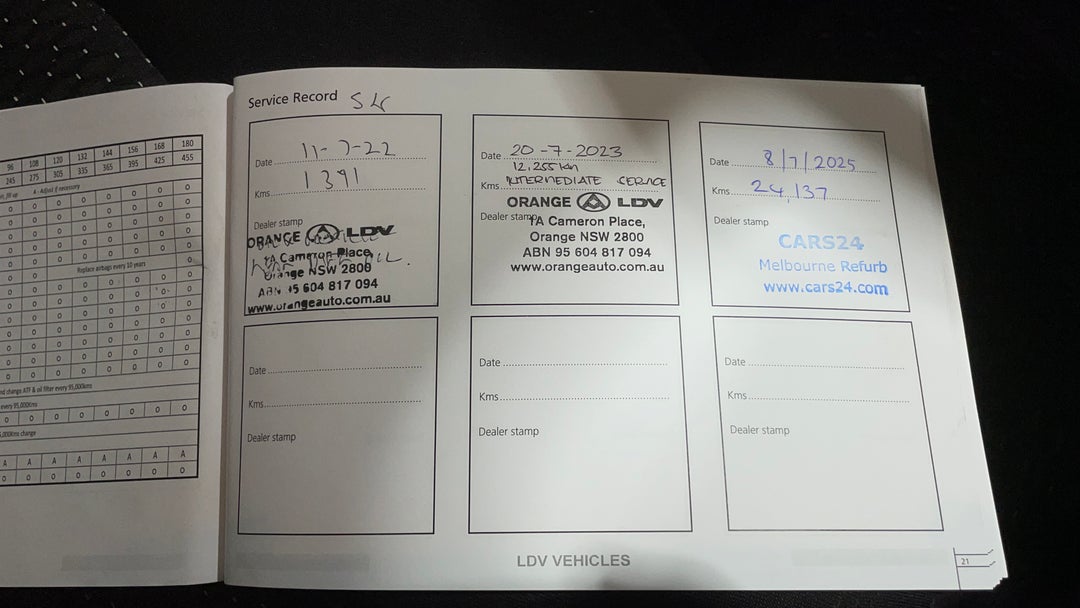 96 108 120 132 144 156 168 180
245 275 305 335 365 395 425 455
4 - Adjust if necessary
0 0 0 0 0 0 0 0
Replace airbags every 10 years
and change ATF & oil filter every 95,000kms
0 0 0 0 0 0 0 0
A A A A A A A A
0 0 0 0 0 0 0 0
Service Record
Date 11-7-22
Kms 1391
Dealer stamp
ORANGE LDV
1A Cameron Place,
Orange NSW 2800
ABN 95 604 817 094
www.orangeauto.com.au
Date 20-7-2023
12,255km
Kms INTERMEDIATE SERVICE
ORANGE LDV
Dealer stamp
1A Cameron Place,
Orange NSW 2800
ABN 95 604 817 094
www.orangeauto.com.au
Date 8/7/2025
Kms 24,137
Dealer stamp
CARS24
Melbourne Refurb
www.cars24.com
Date
Kms
Dealer stamp
Date
Kms
Dealer stamp
Date
Kms
Dealer stamp
LDV VEHICLES
21